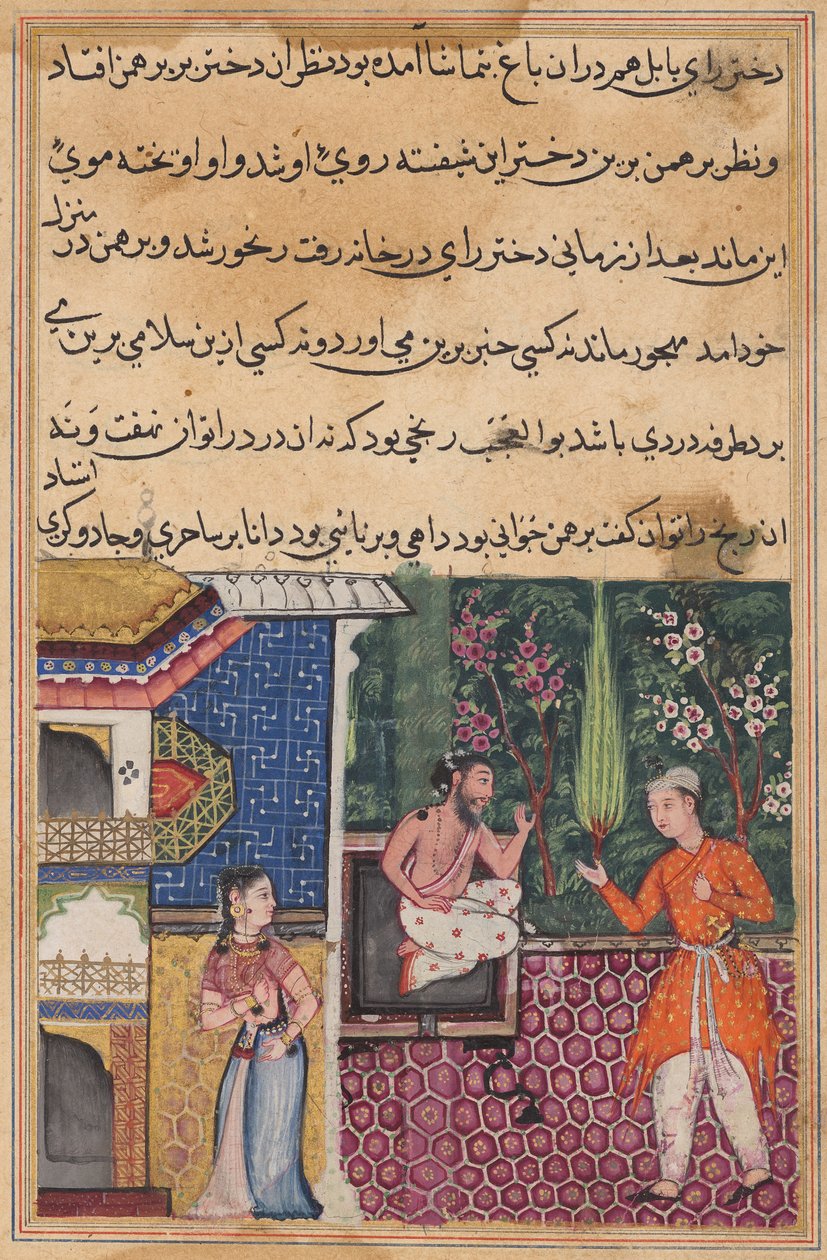 دختر راي بابل هم دران باغ بتماشا آمده بود نظر ان دختر بر برهمن افتاد
و نظر برهمن برين دختر اين شيفته روي او شد و او اويخته موي
اين ماند بعد از زماني دختر راي در خانه رفت رنجور شد و برهمن در منزل
خود امد مهجور ماند نه كسي خبر برين مي اورد و نه كسي ازين سلامي برين مي
برد طرفه دردي باشد بوالعجب رنجي بود كه نه ان درد را توان نهفت و نه
ان رنج را توان كفت برهمن جواني بود داهي و برنائي بود دانا بر ساحري و جادوكري استاد